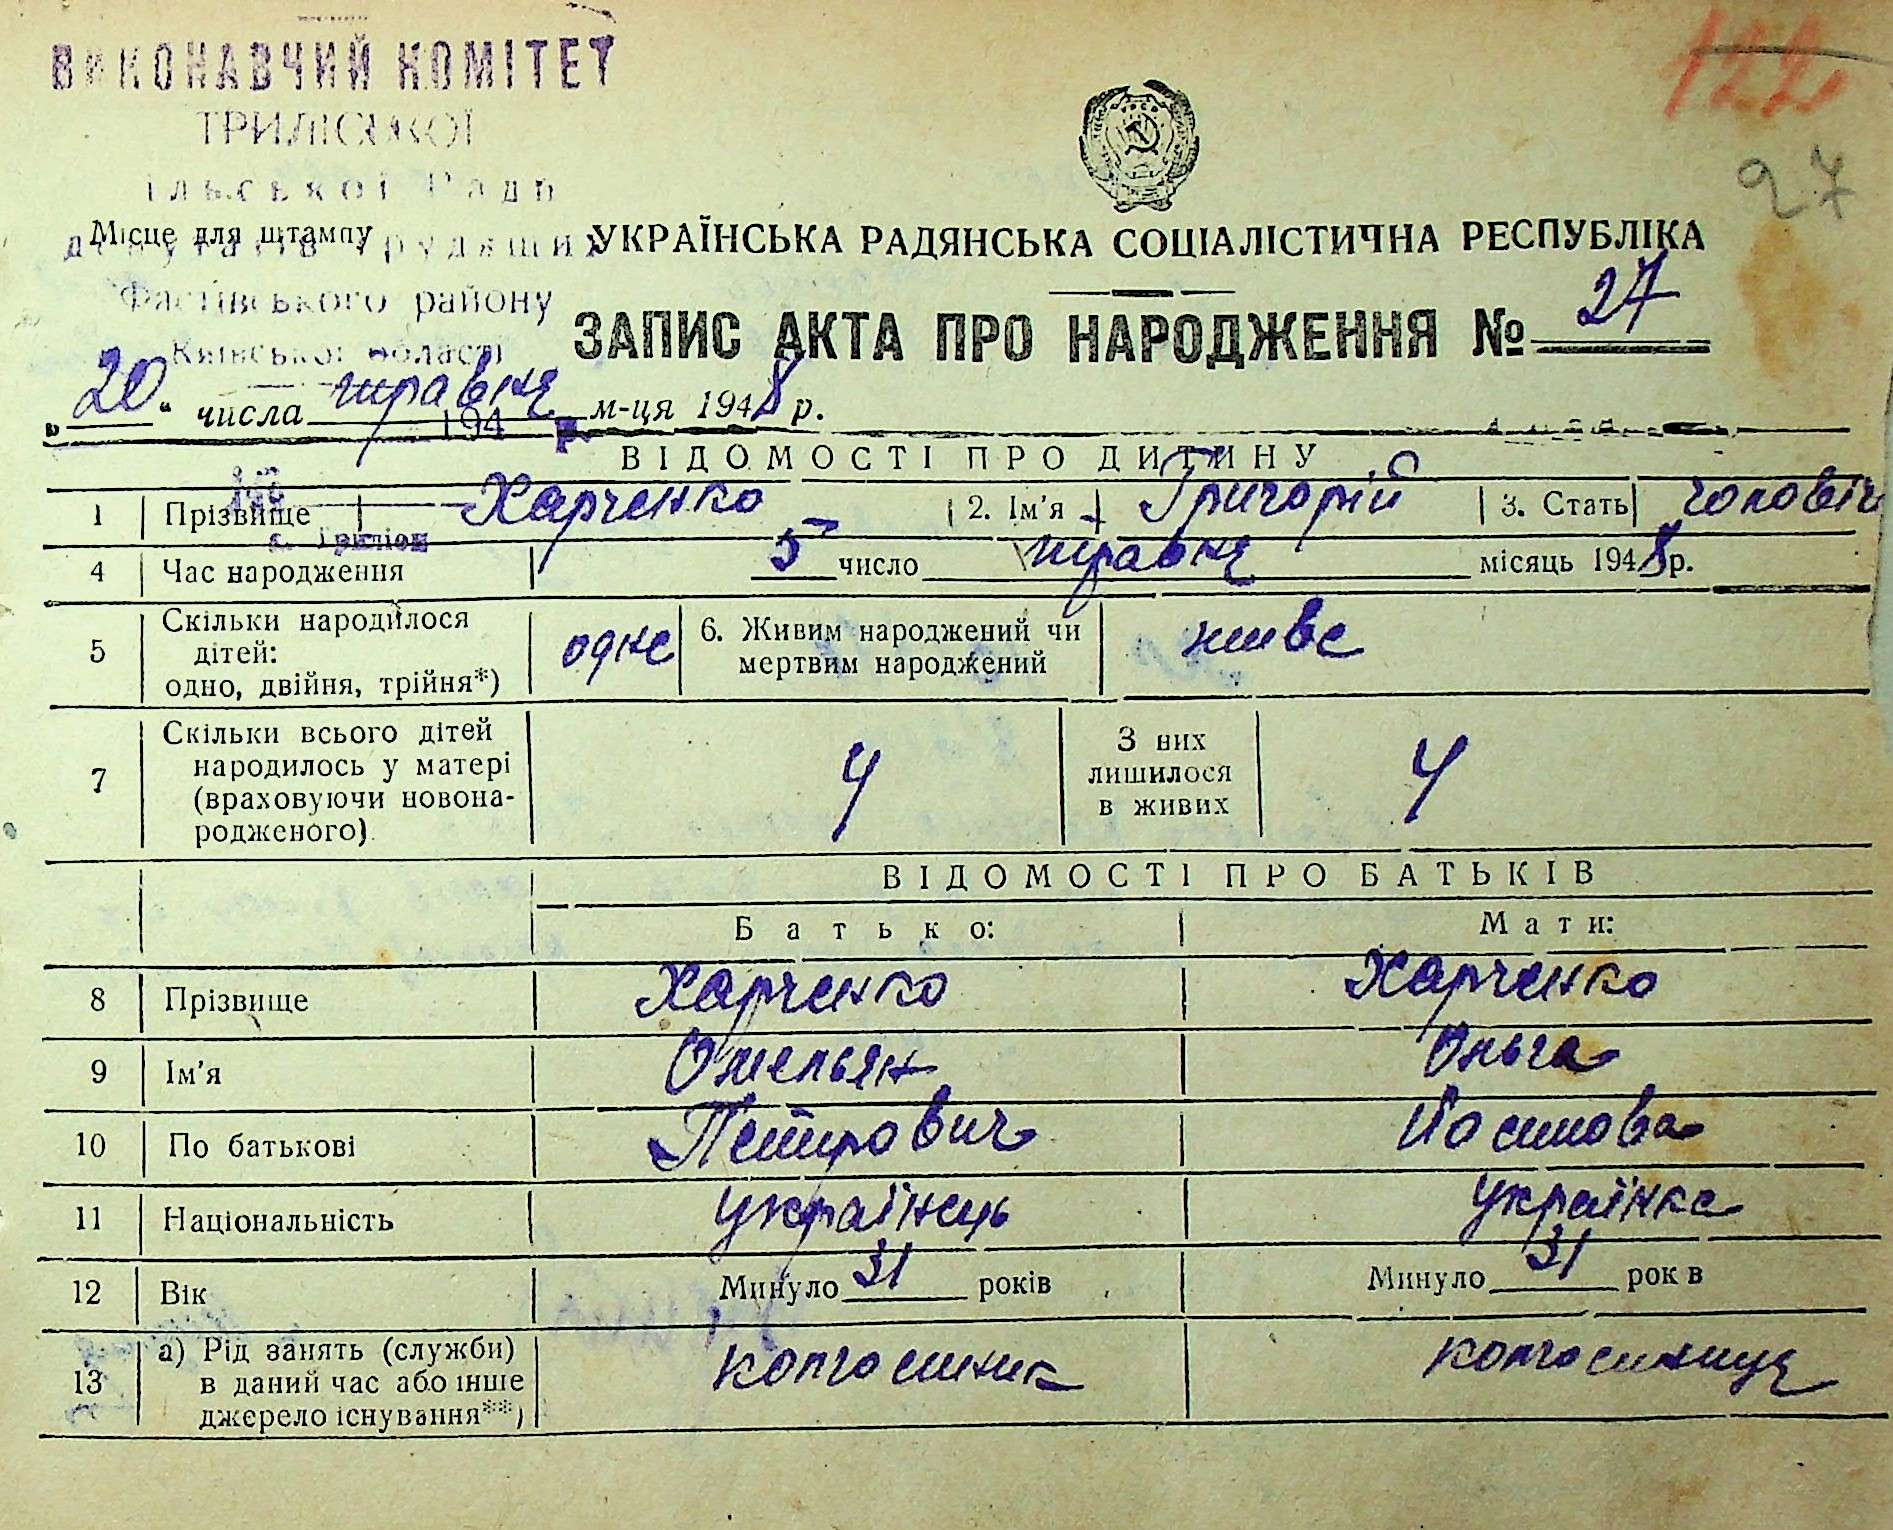 122
27
ВИКОНАВЧИЙ КОМІТЕТ
ТРИЛІСЬКОЇ
ільської Рад
депутатів трудящих
Фастівського району
Київської області
194 р.
Місце для штампу
УКРАЇНСЬКА РАДЯНСЬКА СОЦІАЛІСТИЧНА РЕСПУБЛІКА
ЗАПИС АКТА ПРО НАРОДЖЕННЯ № 27
„20“ числа травня м-ця 1948 р.
ВІДОМОСТІ ПРО ДИТИНУ
1 Прізвище Харченко 2. Ім'я Григорій 3. Стать чоловіч
4 Час народження 5 число травня місяць 1948 р.
5 Скільки народилося дітей: одно, двійня, трійня*) одне 6. Живим народжений чи мертвим народжений живе
7 Скільки всього дітей народилось у матері (враховуючи новонародженого). 4 З них лишилося в живих 4
ВІДОМОСТІ ПРО БАТЬКІВ
Батько: Мати:
8 Прізвище Харченко Харченко
9 Ім'я Омельян Ольга
10 По батькові Петрович Йосипова
11 Національність українець українка
12 Вік Минуло 31 років Минуло 31 рок в
13 а) Рід занять (служби) в даний час або інше джерело існування**) колгоспник колгоспниця